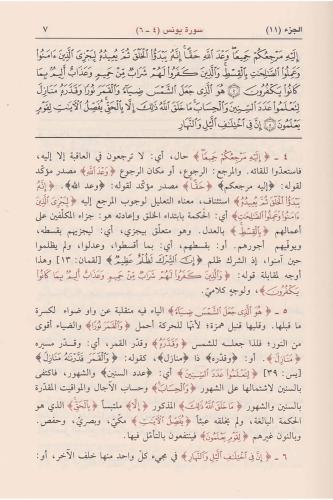 الجزء (١١) سورة يونس (٤ - ٦) ٧
إِلَيْهِ مَرْجِعُكُمْ جَمِيعًا وَعْدَ اللَّهِ حَقًّا إِنَّهُ يَبْدَؤُا الْخَلْقَ ثُمَّ يُعِيدُهُ لِيَجْزِيَ الَّذِينَ ءَامَنُوا
وَعَمِلُوا الصَّالِحَاتِ بِالْقِسْطِ وَالَّذِينَ كَفَرُوا لَهُمْ شَرَابٌ مِنْ حَمِيمٍ وَعَذَابٌ أَلِيمٌ بِمَا
كَانُوا يَكْفُرُونَ ﴿٤﴾ هُوَ الَّذِي جَعَلَ الشَّمْسَ ضِيَاءً وَالْقَمَرَ نُورًا وَقَدَّرَهُ مَنَازِلَ
لِتَعْلَمُوا عَدَدَ السِّنِينَ وَالْحِسَابَ مَا خَلَقَ اللَّهُ ذَلِكَ إِلَّا بِالْحَقِّ يُفَصِّلُ الْآيَاتِ لِقَوْمٍ
يَعْلَمُونَ ﴿٥﴾ إِنَّ فِي اخْتِلَافِ اللَّيْلِ وَالنَّهَارِ
٤ - ﴿إِلَيْهِ مَرْجِعُكُمْ جَمِيعًا﴾ حال، أي: لا ترجعون في العاقبة إلا إليه،
فاستعدّوا للقائه. والمرجع: الرجوع، أو مكان الرجوع ﴿وَعْدَ اللَّهِ﴾ مصدر مؤكد
لقوله: ﴿إليه مرجعكم﴾ ﴿حَقًّا﴾ مصدر مؤكد لقوله: ﴿وعد الله﴾. ﴿إِنَّهُ
يَبْدَؤُا الْخَلْقَ ثُمَّ يُعِيدُهُ﴾ استئناف، معناه التعليل لوجوب المرجع إليه ﴿لِيَجْزِيَ الَّذِينَ
ءَامَنُوا وَعَمِلُوا الصَّالِحَاتِ﴾ أي: الحكمة بابتداء الخلق وإعادته هو: جزاء المكلفين على
أعمالهم ﴿بِالْقِسْطِ﴾ بالعدل. وهو متعلّق بيجزي، أي: ليجزيهم بقسطه،
ويوفّيهم أجورهم. أو: بقسطهم، أي: بما أقسطوا، وعدلوا، ولم يظلموا
حين آمنوا، إذ الشرك ظلم ﴿إِنَّ الشِّرْكَ لَظُلْمٌ عَظِيمٌ﴾ [لقمان: ١٣] وهذا
أوجه لمقابلة قوله: ﴿وَالَّذِينَ كَفَرُوا لَهُمْ شَرَابٌ مِنْ حَمِيمٍ وَعَذَابٌ أَلِيمٌ بِمَا كَانُوا
يَكْفُرُونَ﴾، ولوجهٍ كلاميّ.
٥ - ﴿هُوَ الَّذِي جَعَلَ الشَّمْسَ ضِيَاءً﴾ الياء فيه منقلبة عن واو ضواء لكسرة
ما قبلها. وقلبها قنبل همزة؛ لأنها للحركة أحمل ﴿وَالْقَمَرَ نُورًا﴾ والضياء أقوى
من النور؛ فلذا جعله للشمس ﴿وَقَدَّرَهُ﴾ وقدّر القمر، أي: وقدّر مسيره
﴿مَنَازِلَ﴾. أو: وقدّره ذا ﴿منازل﴾، كقوله: ﴿وَالْقَمَرَ قَدَّرْنَاهُ مَنَازِلَ﴾
[يس: ٣٩] ﴿لِتَعْلَمُوا عَدَدَ السِّنِينَ﴾ أي: ﴿عدد السنين﴾ والشهور، فاكتفى
بالسنين لاشتمالها على الشهور ﴿وَالْحِسَابَ﴾ وحساب الآجال والمواقيت المقدّرة
بالسنين والشهور ﴿مَا خَلَقَ اللَّهُ ذَلِكَ﴾ المذكور ﴿إِلَّا﴾ ملتبساً ﴿بِالْحَقِّ﴾ الذي هو
الحكمة البالغة، ولم يخلقه عبثاً ﴿يُفَصِّلُ الْآيَاتِ﴾ مكّيّ، وبصريّ، وحفص.
وبالنون غيرهم ﴿لِقَوْمٍ يَعْلَمُونَ﴾ فينتفعون بالتأمّل فيها.
٦ - ﴿إِنَّ فِي اخْتِلَافِ اللَّيْلِ وَالنَّهَارِ﴾ في مجيء كلّ واحد منها خلف الآخر، أو: